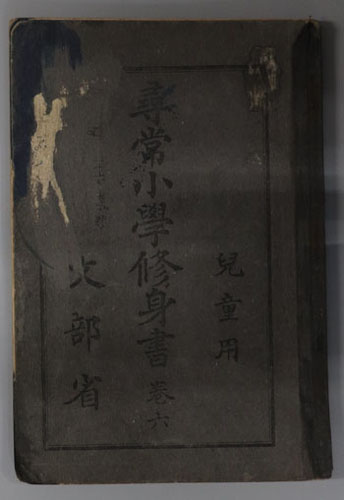 兒童用
尋常小學修身書 巻六
文部省